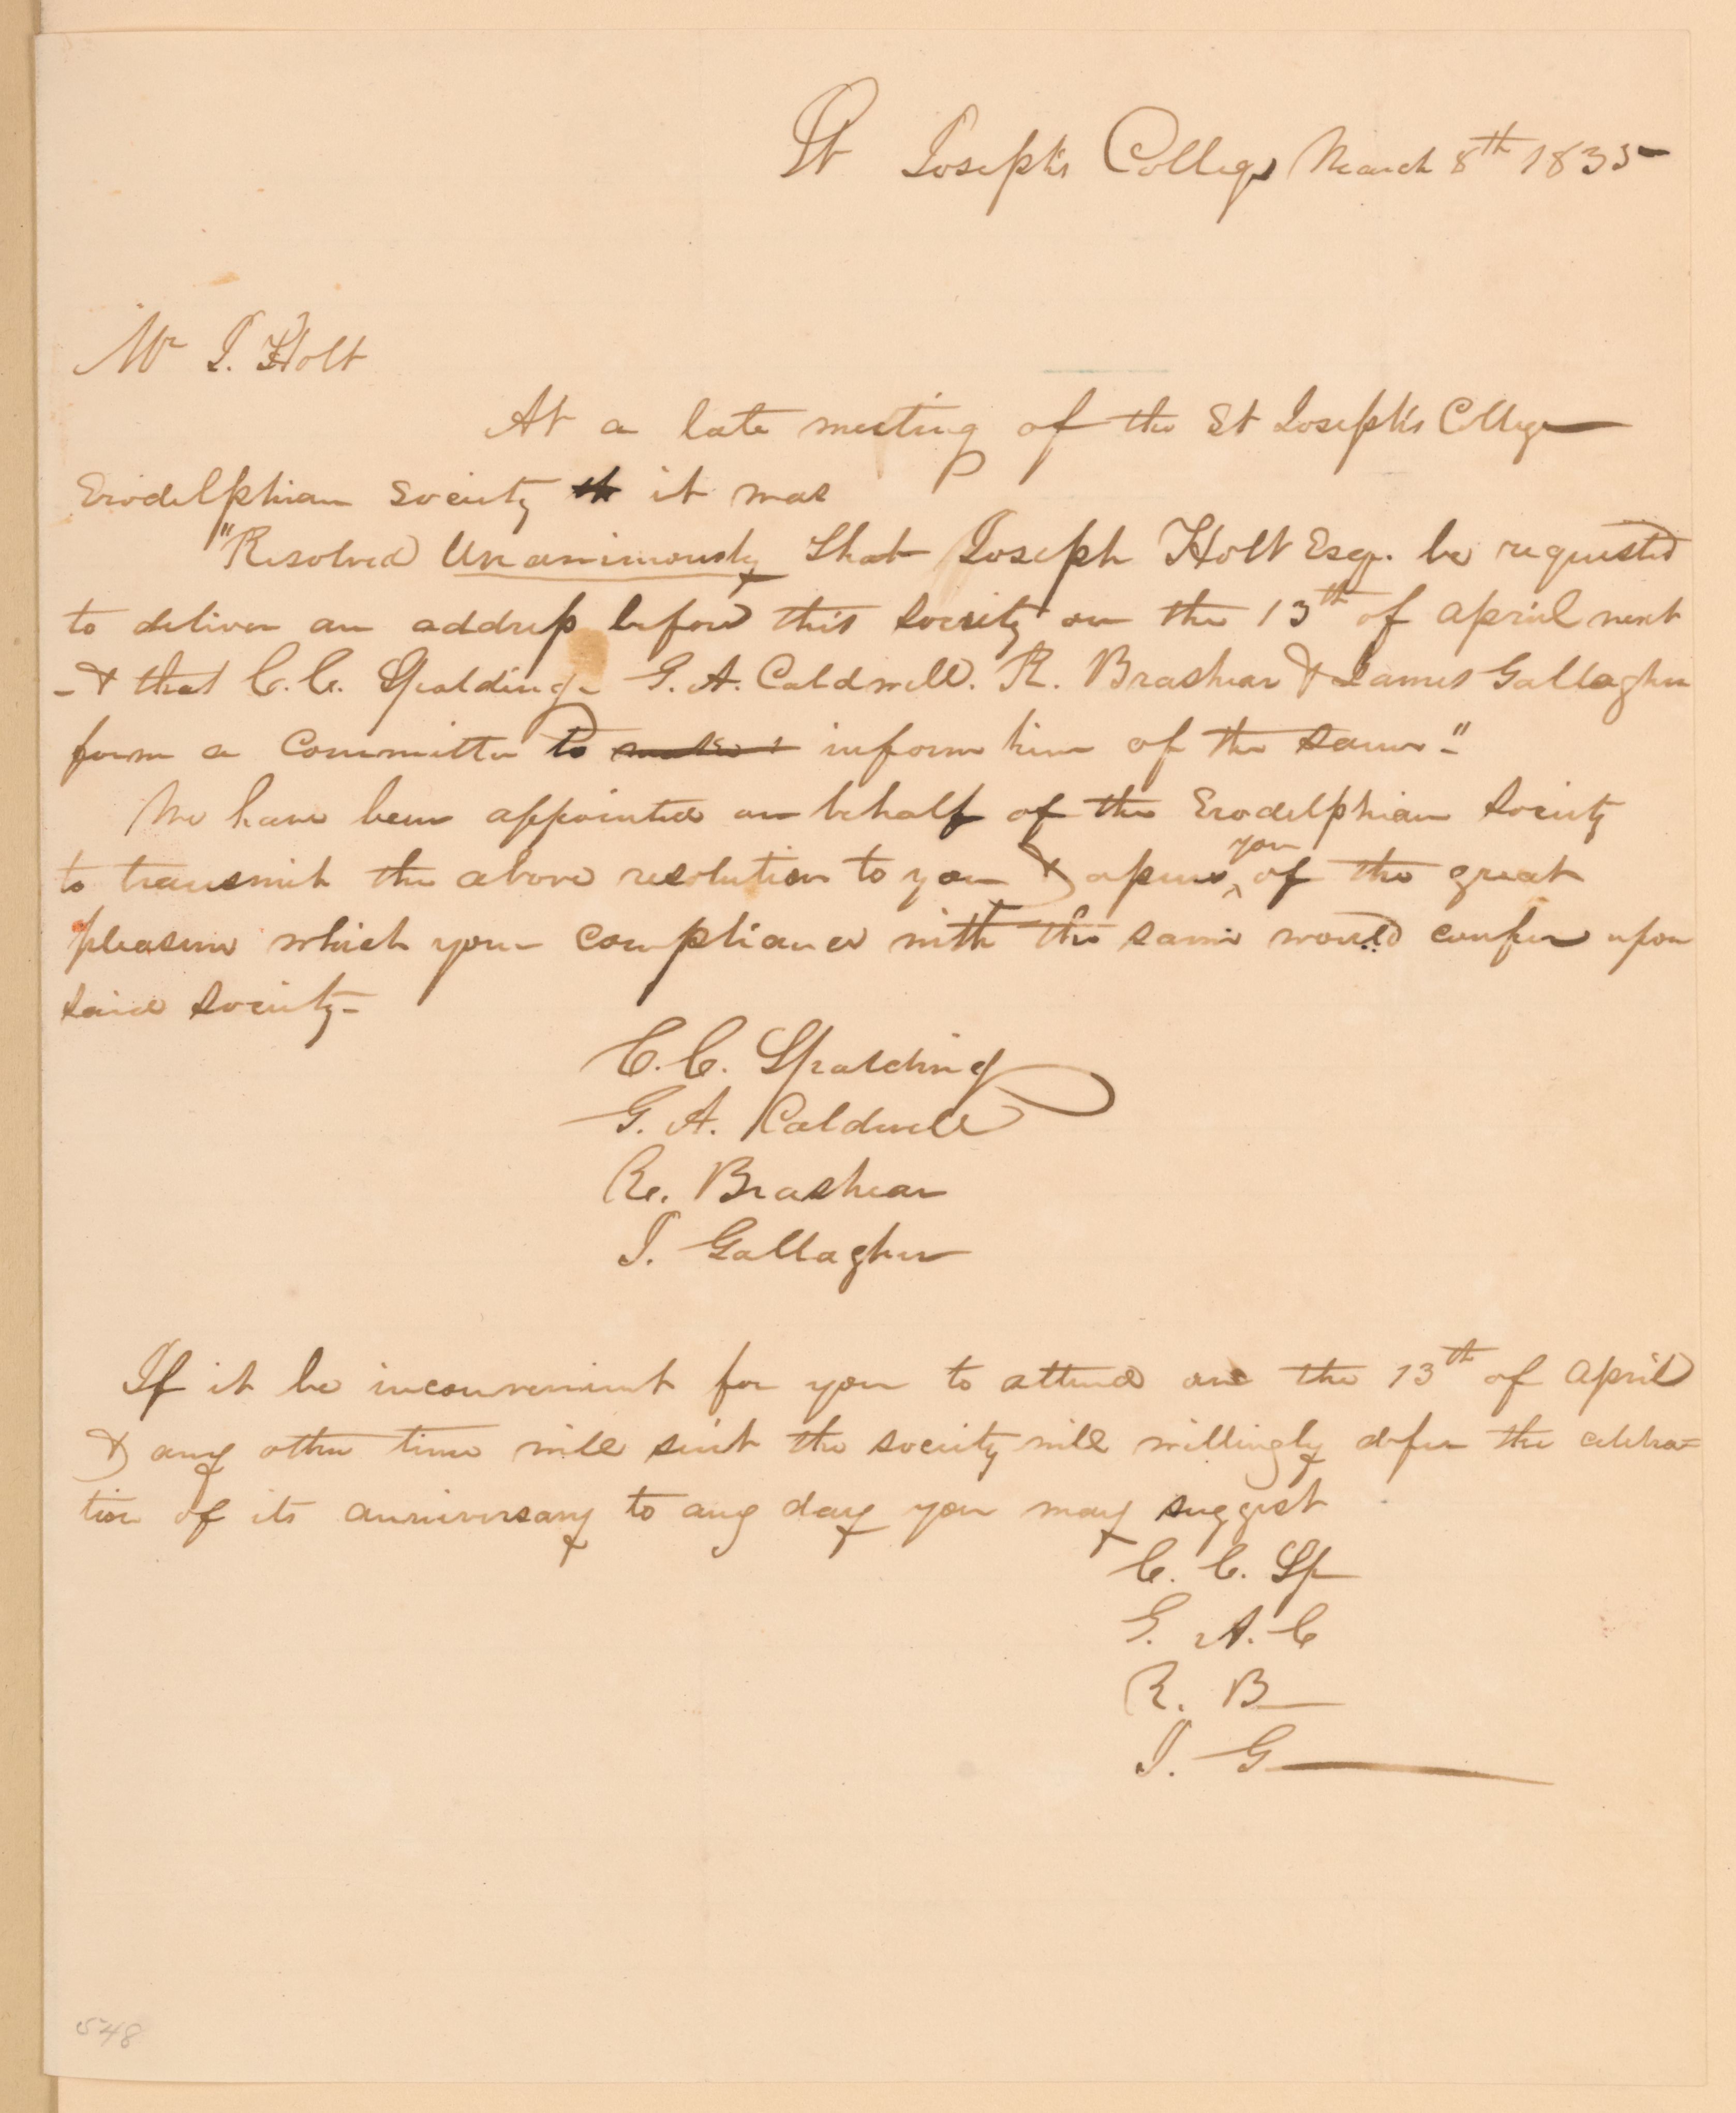 St Joseph's College March 8th 1835
Mr J. Holt
At a late meeting of the St Joseph's College
Erodelphian Society it was
"Resolved Unanimously that Joseph Holt Esq. be requested
to deliver an address before this Society on the 13th of April next
- & that C. C. Spalding. G. A. Caldwell. R. Brashear & James Gallagher
form a Committee to inform him of the same."
We have been appointed on behalf of the Erodelphian Society
to transmit the above resolution to you & assure you of the great
pleasure which your compliance with the same would confer upon
said Society-
C. C. Spalding
G. A. Caldwell
R. Brashear
J. Gallagher
If it be inconvenient for you to attend on the 13th of April
& any other time will suit the society will willingly defer the celebra=
tion of its anniversary to any day you may suggest
C. C. Sp
G. A. C
R. B
J. G
548